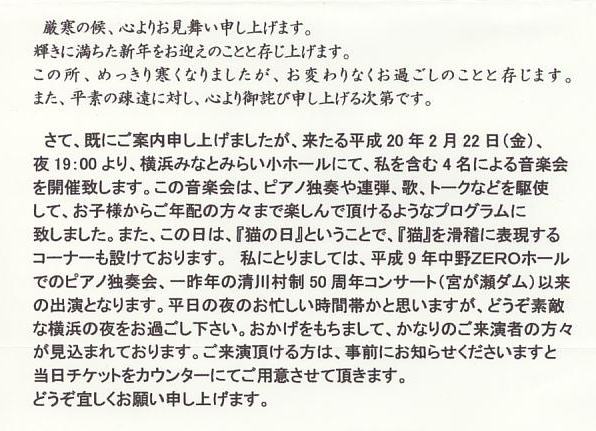 厳寒の候、心よりお見舞い申し上げます。
輝きに満ちた新年をお迎えのことと存じ上げます。
この所、めっきり寒くなりましたが、お変わりなくお過ごしのことと存じます。
また、平素の疎遠に対し、心より御詫び申し上げる次第です。
さて、既にご案内申し上げましたが、来たる平成20年2月22日（金）、
夜19:00より、横浜みなとみらい小ホールにて、私を含む4名による音楽会
を開催致します。この音楽会は、ピアノ独奏や連弾、歌、トークなどを駆使
して、お子様からご年配の方々まで楽しんで頂けるようなプログラムに
致しました。また、この日は、『猫の日』ということで、『猫』を滑稽に表現する
コーナーも設けております。 私にとりましては、平成9年中野ZEROホール
でのピアノ独奏会、一昨年の清川村制50周年コンサート（宮が瀬ダム）以来
の出演となります。平日の夜のお忙しい時間帯かと思いますが、どうぞ素敵
な横浜の夜をお過ごし下さい。おかげをもちまして、かなりのご来演者の方々
が見込まれております。ご来演頂ける方は、事前にお知らせくださいますと
当日チケットをカウンターにてご用意させて頂きます。
どうぞ宜しくお願い申し上げます。